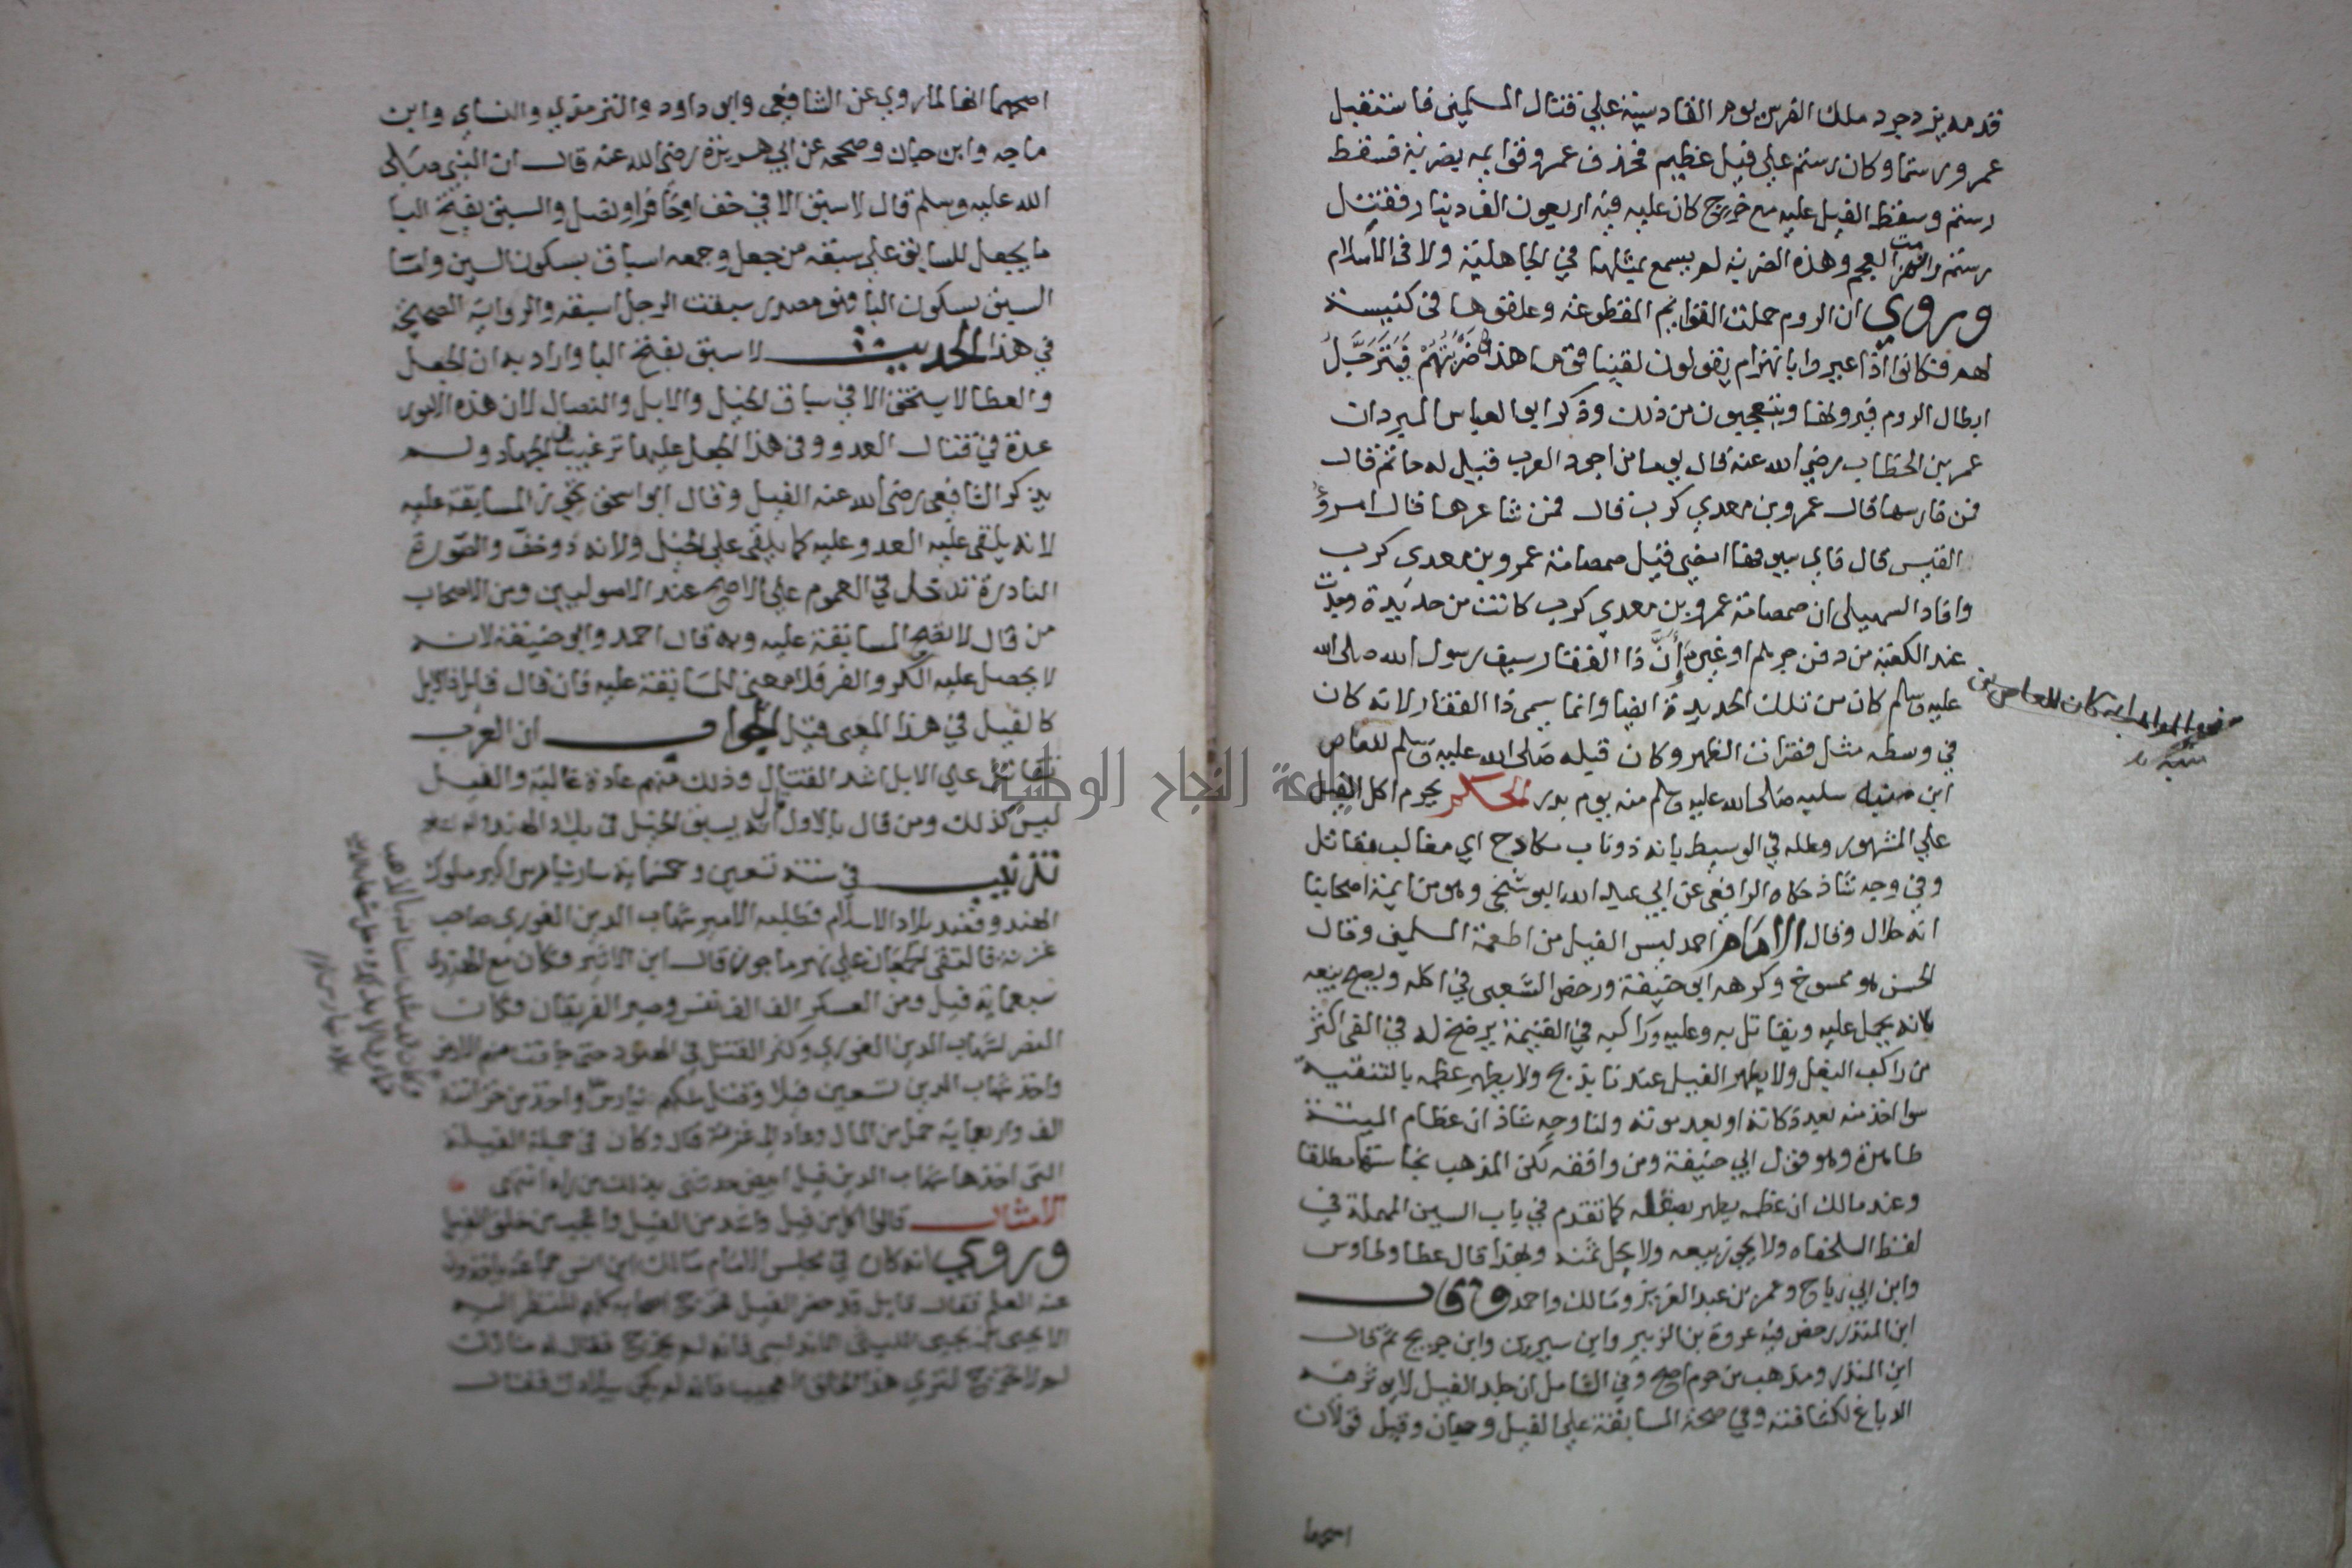 قدمه يزدجرد ملك الفرس يوم القادسية علي قتال المسلمين فاستقبل
عمرو رستما وكان رستم علي فيل عظيم فحذف عمرو قوايمه بضربة فسقط
رستم وسقط الفيل عليه مع خرج كان عليه فيه اربعون الف دينار فقتل
رستم وانهزمت العجم وهذه الضربة لم يسمع بمثلها في الجاهلية ولا في الاسلام
وروي ان الروم حملت القوايم المقطوعة وعلقوها في كنيسة
لهم فكانوا اذا عيروا بانهزام يقولون لقينا قوما هذا ضربهم فيترجل
ابطال الروم فيرونها ويتعجبون من ذلك وذكر ابو العباس المبرد ان
عمر بن الخطاب رضي الله عنه قال يوما من اجود العرب قيل له حاتم قال
فمن فارسها قال عمرو بن معدي كرب قال فمن شاعرها قال امرؤ
القيس قال فاي سيوفها امضي قيل صمصامة عمرو بن معدي كرب
وافاد السهيلي ان صمصامة عمرو بن معدي كرب كانت من حديدة وجدت
عند الكعبة من دفن جرهم او غيرهم وأنّ ذا الفقار سيف رسول الله صلى الله
عليه وسلم كان من تلك الحديدة ايضا وانما سمي ذا الفقار لانه كان
في وسطه مثل فقرات الظهر وكان قبله صلى الله عليه وسلم للعاص
ابن منبه سلبه صلى الله عليه وسلم منه يوم بدر الحكم يحرم اكل الفيل
علي المشهور وعلله في الوسيط بانه ذو ناب مكادح اي مغالب مقاتل
وفي وجه شاذ حكاه الرافعي عن ابي عبد الله البوشنجي وهو من ايمة اصحابنا
انه حلال وقال الامام احمد ليس الفيل من اطعمة المسلمين وقال
الحسن هو ممسوخ وكرهه ابو حنيفة ورخص الشعبي في اكله ويصح بيعه
لانه يحمل عليه ويقاتل به وعليه وراكبه في الغنيمة يرضخ له في الفي اكثر
من راكب البغل ولا يطهر الفيل عندنا بذبح ولا يطهر عظمه بالتنقية
سوا اخذ منه بعد ذكاته او بعد موته ولنا وجه شاذ ان عظام الميتة
طاهرة وهو قول ابي حنيفة ومن وافقه لكن المذهب نجاستها مطلقا
وعند مالك ان عظمه يطهر بصقله كما تقدم في باب السين المهملة في
لفظ السلحفاه ولا يجوز بيعه ولا يحل ثمنه وبهذا قال عطا وطاوس
وابن ابي رباح وعمر بن عبد العزيز ومالك واحمد وقال
ابن المنذر رخص فيه عروة بن الزبير وابن سيرين وابن جريج ثم قال
ابن المنذر ومذهب من حرم اصح وفي الشامل ان جلد الفيل لا يوثر فيه
الدباغ لكثافته وفي صحة المسابقة علي الفيل وجهان وقيل قولان
اصحهما
اصحهما انها لما روي عن الشافعي وابو داود والترمذي والنساي وابن
ماجه وابن حبان وصححه عن ابي هريرة رضي الله عنه قال ان النبي صلى
الله عليه وسلم قال لا سبق الا في خف او حافر او نصل والسبق بفتح البا
ما يجعل للسابق علي سبقه من جعل وجمعه اسباق بسكون السين واما
السبق بسكون البا فهو مصدر سبقت الرجل اسبقه والرواية الصحيحة
في هذا الحديث لا سبق بفتح البا واراد به ان الجعل
والعطا لا يستحق الا في سباق الخيل والابل والنصال لان هذه الامور
عدة في قتال العدو وفي هذا الجعل عليها ترغيب في الجهاد ولم
يذكر الشافعي رضي الله عنه الفيل وقال ابو اسحق تجوز المسابقة عليه
لانه يلقى عليه العدو عليه كما يلقى علي الخيل ولانه ذو خف والصورة
النادرة تدخل في العموم علي الاصح عند الاصوليين ومن الاصحاب
من قال لا تصح المسابقة عليه وبه قال احمد وابو حنيفة لانه
لا يحصل عليه الكر والفر فلا معني للمسابقة عليه فان قال قايل فالابل
كالفيل في هذا المعنى قيل الجواب ان العرب
تقاتل علي الابل اشد القتال وذلك منهم عادة غالبة والفيل
ليس كذلك ومن قال بالاول قال انه يسبق الخيل في بلاد الهند
تذنيب في سنة تسعين وخمسماية سار بنارس اكبر ملوك
الهند وقصد بلاد الاسلام فطلبه الامير شهاب الدين الغوري صاحب
غزنة فالتقى الجمعان علي نهر ماجون قال ابن الاثير وكان مع الهندي
سبعماية فيل ومن العسكر الف الف نفس وصبر الفريقان وكان
النصر لشهاب الدين الغوري وكثر القتل في الهنود حتى جافت منهم الارض
واخذ شهاب الدين تسعين فيلا وقتل ملكهم بنارس واخذ من خزانته
الف واربعماية حمل من المال وعاد الى غزنة قال وكان في جملة الفيلة
التي اخذها شهاب الدين فيل ابيض حدثني بذلك من راه انتهى
الامثال قالوا اكل من فيل واشد من الفيل واعجب من خلق الفيل
وروي انه كان في مجلس الامام مالك ابن انس جماعة ياخذون
عنه العلم فقال قايل قد حضر الفيل فخرج اصحابه كلهم للنظر اليه
الا يحيى بن يحيى الليثي الاندلسي فانه لم يخرج فقال له مالك
لم لا تخرج لترى هذا الخلق العجيب فانه لم يكن ببلادك فقال
جامعة النجاح الوطنية